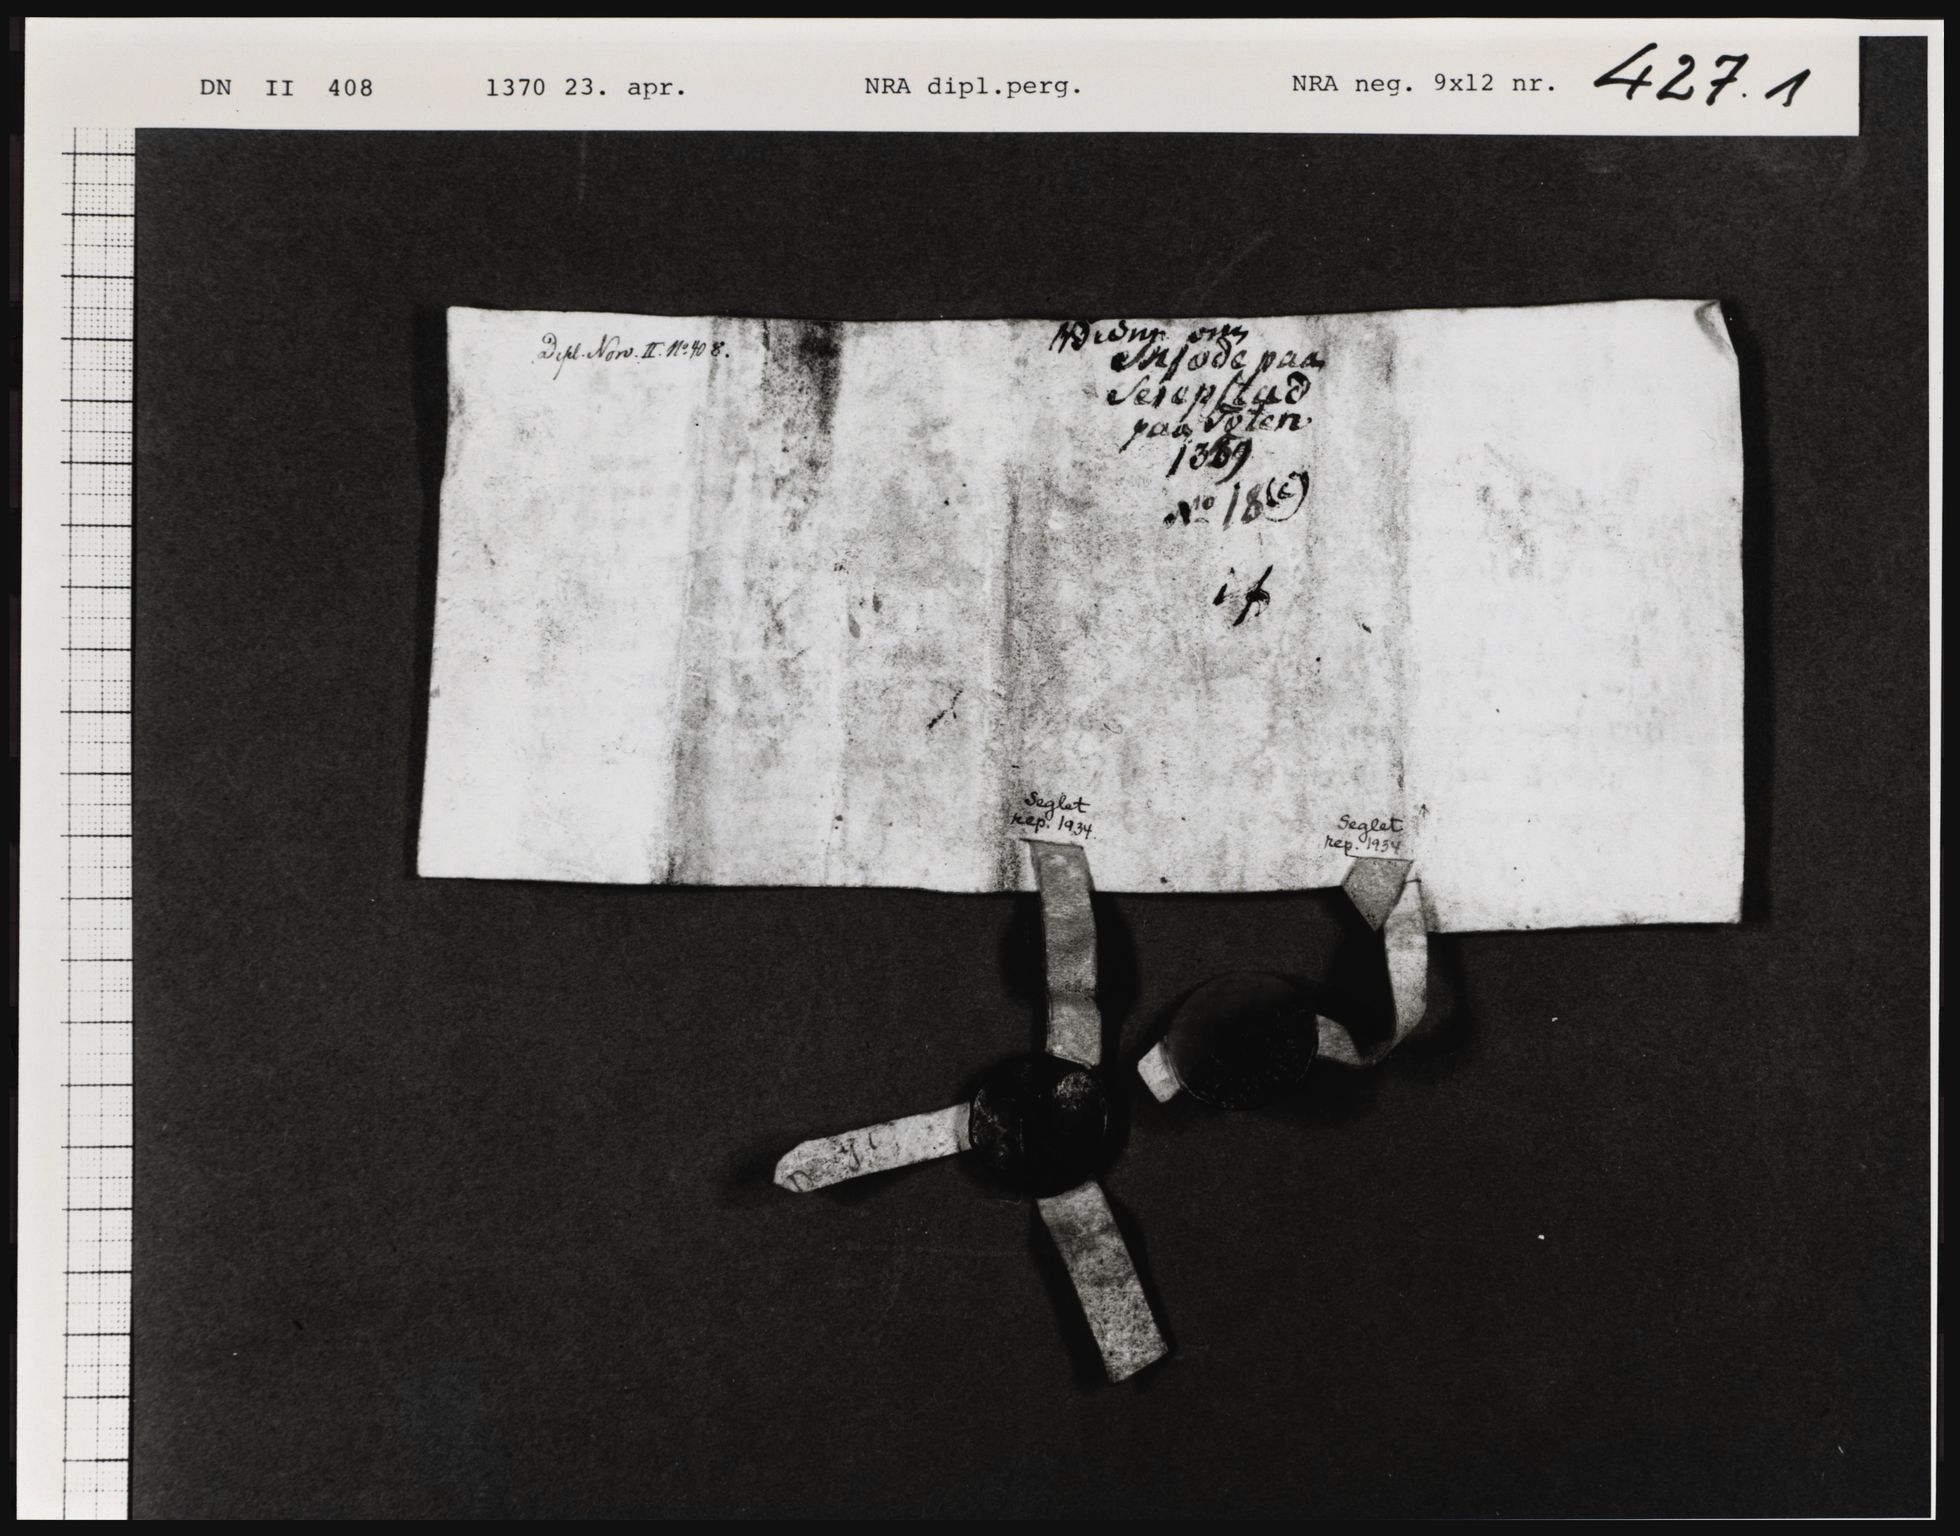 DN II 408 1370 23. apr. NRA dipl.perg. NRA neg. 9x12 nr. 427.1
Dipl. Norv. II. No 408.
om
paa
paa Toten
1369
No 18(c)
Seglet
rep. 1934.
Seglet
rep. 1934